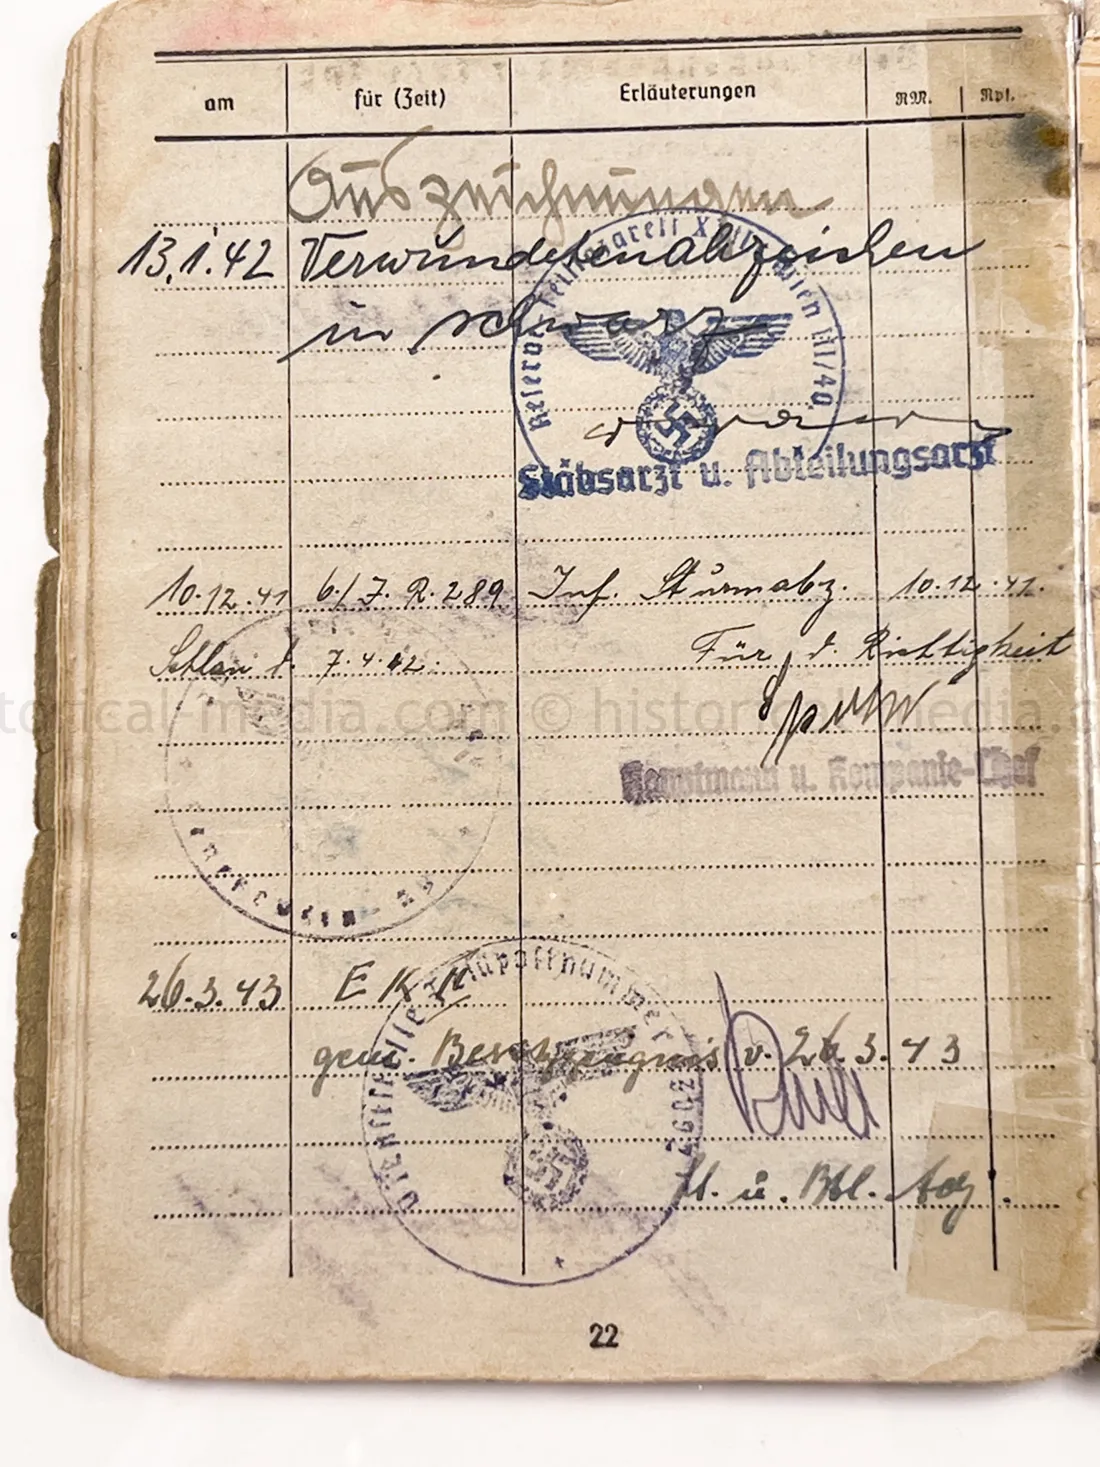 am für (Zeit) Erläuterungen RM. Rpf.
Auszeichnungen
13.1.42 Verwundetenabzeichen
in schwarz
Wien III/40
Stabsarzt u. Abteilungsarzt
10.12.41 6./J. R. 289 Inf. Sturmabz. 10.12.41.
d. 7.4.42. Für d. Richtigkeit
historical-media.com © historical-media.com
Hauptmann u. Kompanie-Chef
26.3.43 E K II
gem. Besitzzeugnis v. 26.3.43
Dienststelle Feldpostnummer
22